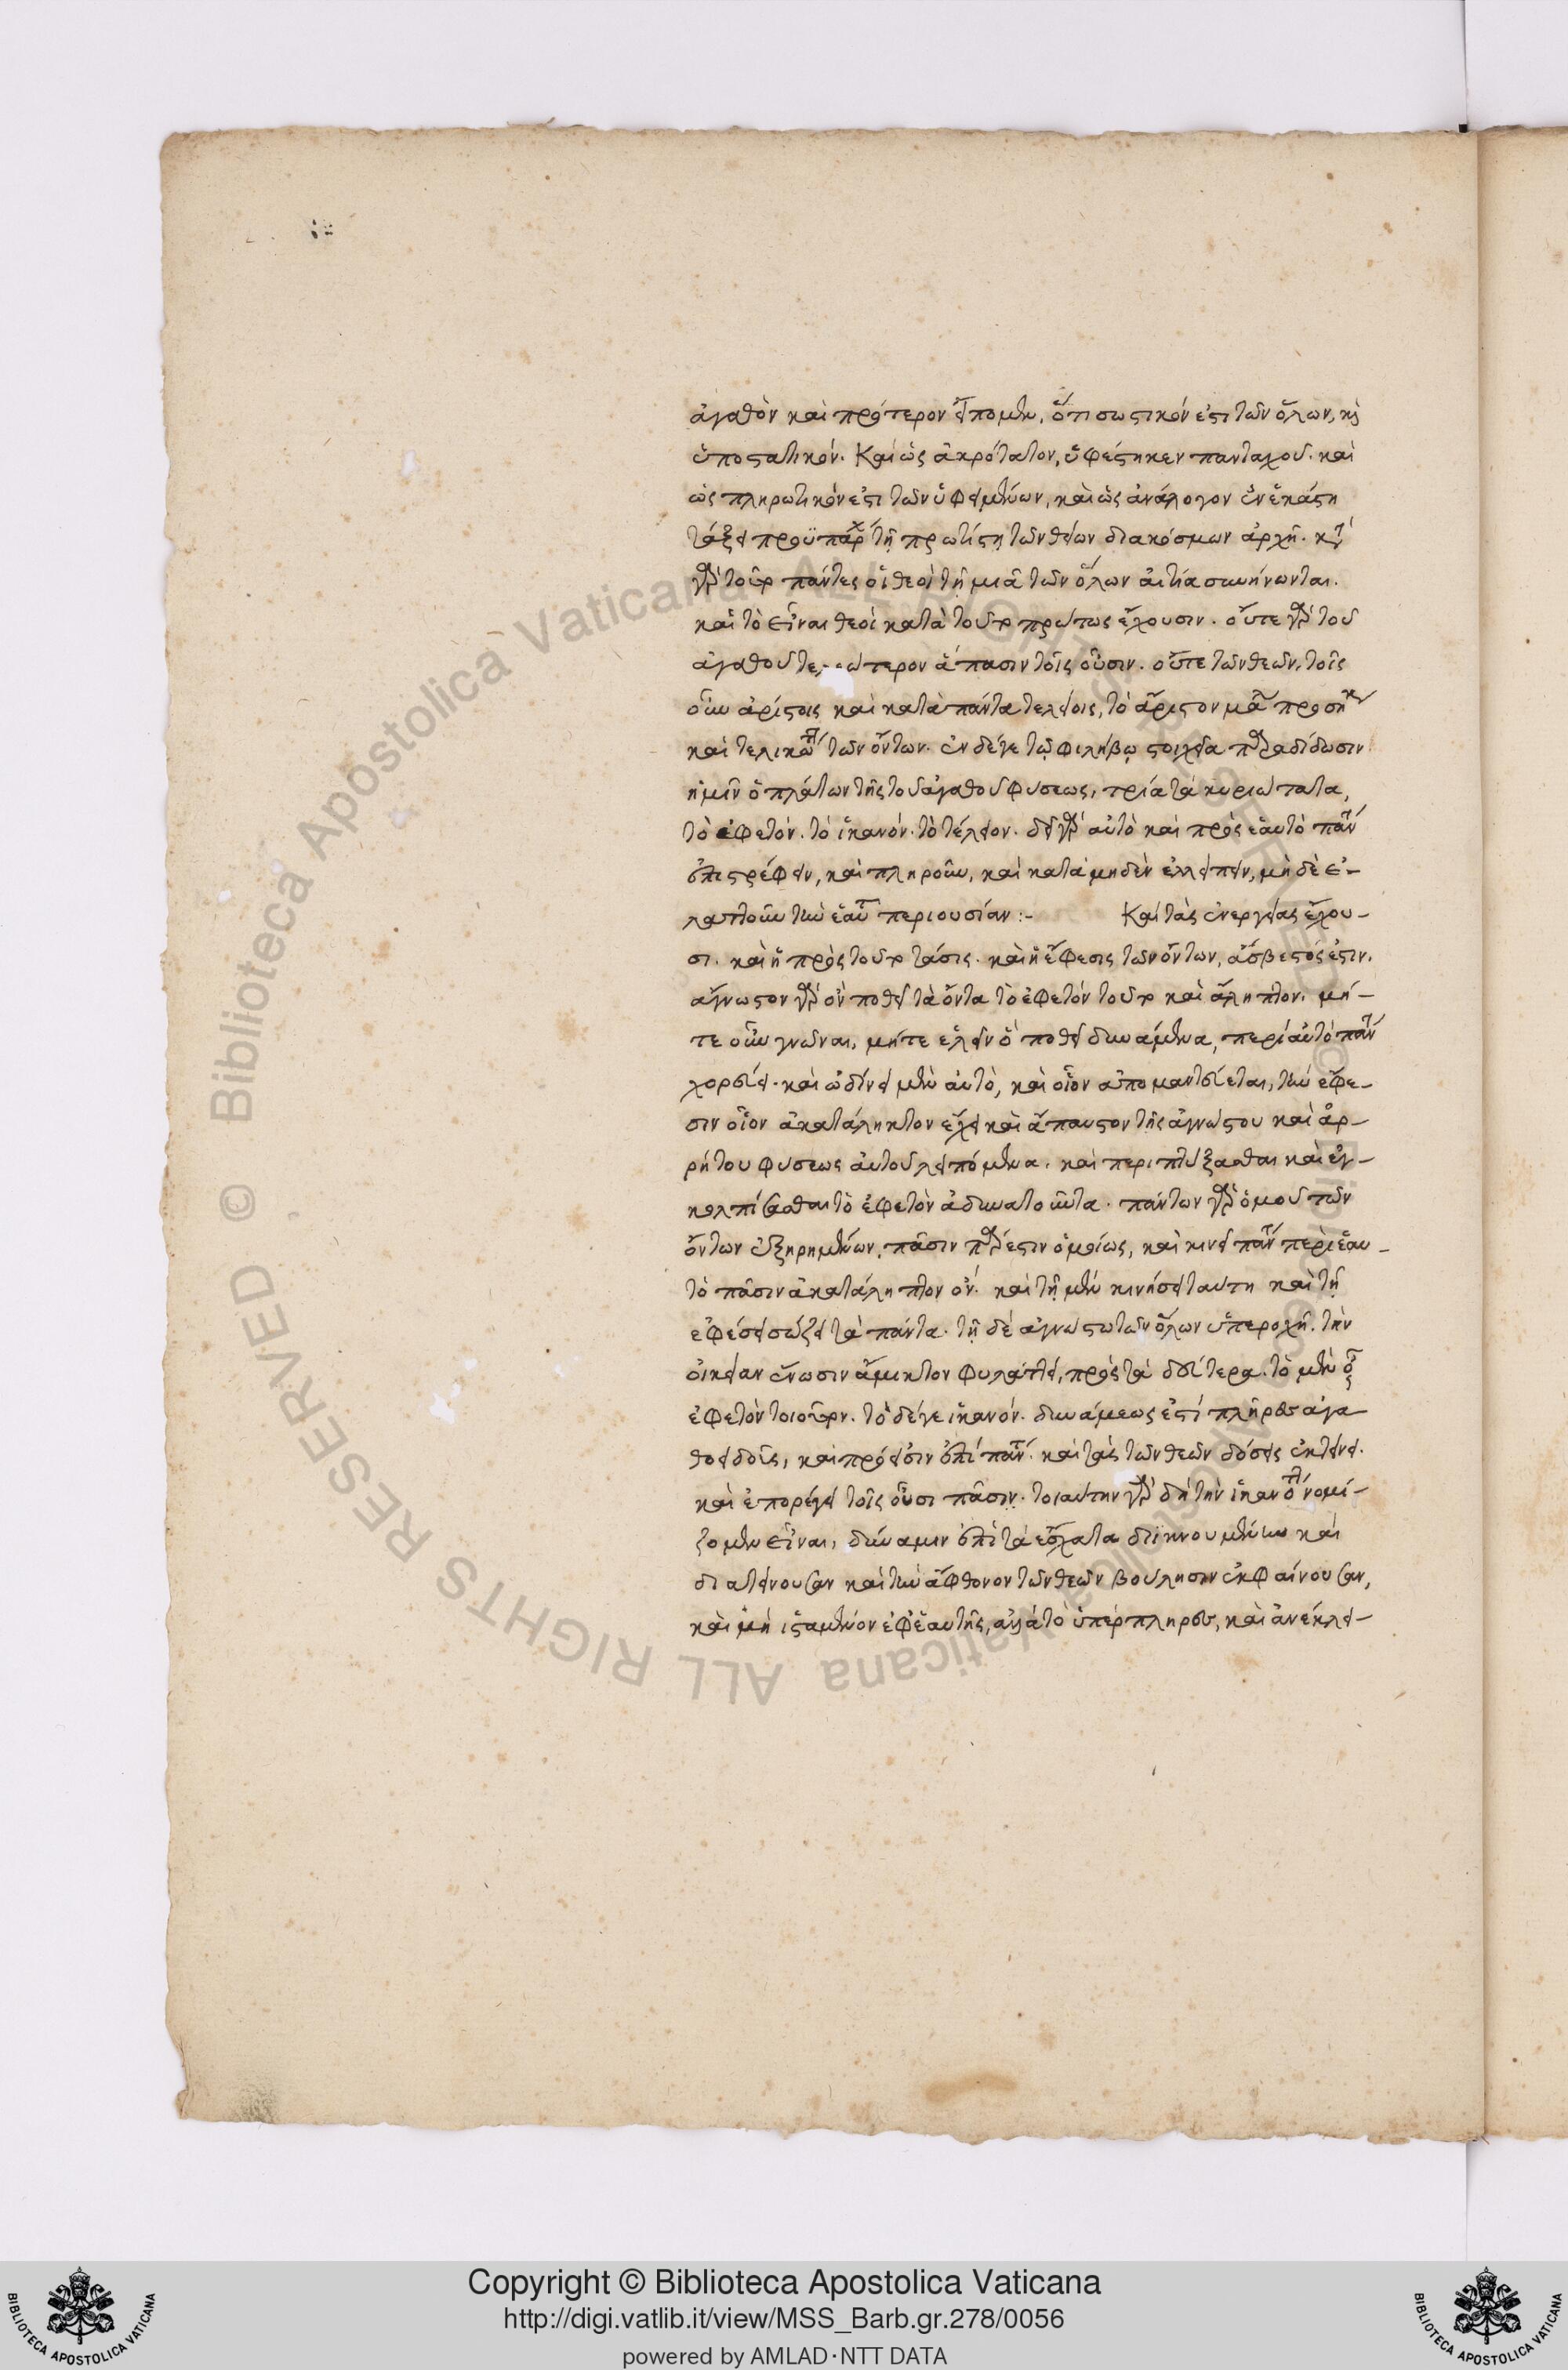 ἀγαθὸν καὶ πρότερον εἴπομεν, ὅτι σωστικόν ἐστι τῶν ὅλων, καὶ
ὑποστατικόν. Καὶ ὡς ἀκρότατον, ὑφέστηκεν πανταχοῦ. καὶ
ὡς πληρωτικόν ἐστι τῶν ὑφειμένων, καὶ ὡς ἀνάλογον ἐν ἑκάστη
τάξει προϋπάρχον τῇ πρωτίστῃ τῶν θείων διακόσμων ἀρχῇ. κατὰ
γὰρ τοῦτο πάντες οἱ θεοὶ τῇ μιᾷ τῶν ὅλων αἰτίᾳ συνήνωνται.
καὶ τὸ εἶναι θεοὶ κατὰ τοῦτο πρώτως ἔχουσιν. οὔτε γὰρ τοῦ
ἀγαθοῦ τε ώτερον ἅπασιν τοῖς οὖσιν. οὔτε τῶν θεῶν. τοῖς
οὖν ἀρίστοις καὶ κατὰ πάντα τελείοις, τὸ ἄριστον μάλιστα προσήκει
καὶ τελικώτατον τῶν ὄντων. ἐν δέ γε τῷ φιλήβῳ στοιχεῖα παραδίδωσιν
ἡμῖν ὁ πλάτων τῆς τοῦ ἀγαθοῦ φύσεως, τρία τὰ κυριώτατα,
τὸ ἐφετόν. τὸ ἱκανόν. τὸ τέλειον. δεῖ γὰρ αὐτὸ καὶ πρὸς ἑαυτὸ πάντα
ἐπιστρέφειν, καὶ πληροῦν, καὶ κατὰ μηδὲν ἐλλείπειν, μὴ δὲ ἐ-
λαττοῦν τὴν ἑαυτοῦ περιουσίαν :- Καὶ τὰς ἐνεργείας ἔχου-
σι. καὶ ἡ πρὸς τοῦτο τάσις. καὶ ἡ ἔφεσις τῶν ὄντων, ἄσβεστός ἐστιν.
ἄγνωστον γὰρ ὂν ποθεῖ τὰ ὄντα τὸ ἐφετὸν τοῦτο καὶ ἄληπτον. μή-
τε οὖν γνῶναι, μήτε ἑλεῖν ὃ ποθεῖ δυνάμενα, περὶ αὐτὸ πάντα
χορεύει. καὶ ὠδίνει μὲν αὐτὸ, καὶ οἷον ἀπομαντεύεται, τὴν ἔφε-
σιν οἷον ἀκατάληκτον ἔχει καὶ ἄπαυστον τῆς ἀγνώστου καὶ ἀρ-
ρήτου φύσεως αὐτοῦ λειπόμενα. καὶ περιπτύξασθαι καὶ ἐγ-
κολπίσασθαι τὸ ἐφετὸν ἀδυνατοῦντα. πάντων γὰρ ὁμοῦ τῶν
ὄντων ἐξῃρημένων, πᾶσιν πάρεστιν ὁμοίως, καὶ κινεῖ πάντα περὶ ἑαυ-
τὸ πᾶσιν ἀκατάληπτον ὄν. καὶ τῇ μὲν κινήσει ταύτη καὶ τῇ
ἐφέσει σώζει τὰ πάντα. τῇ δὲ ἀγνώστω τῶν ὅλων ὑπεροχῇ. τὴν
οἰκείαν ἕνωσιν ἄμικτον φυλάττει, πρὸς τὰ δεύτερα. τὸ μὲν οὖν
ἐφετὸν τοιοῦτον. τὸ δέ γε ἱκανόν. δυνάμεώς ἐστὶ πλῆρες ἀγα
θοειδοῦς, καὶ πρόεισιν ἐπὶ πάντα. καὶ τὰς τῶν θεῶν δόσεις ἐκτείνει.
καὶ ἐπορέγει τοῖς οὖσι πᾶσιν. τοιαύτην γὰρ δὴ τὴν ἱκανότητα νομί-
ζομεν εἶναι, δύναμιν ἐπὶ τὰ ἔσχατα διικνουμένην καὶ
διατείνουσαν καὶ τὴν ἄφθονον τῶν θεῶν βούλησιν ἐκφαίνουσαν,
καὶ μὴ ἱσταμένον ἐφ' ἑαυτῆς, ἀλλὰ τὸ ὑπέρπληρες, καὶ ἀνέκλει-
Copyright © Biblioteca Apostolica Vaticana
http://digi.vatlib.it/view/MSS_Barb.gr.278/0056
powered by AMLAD·NTT DATA